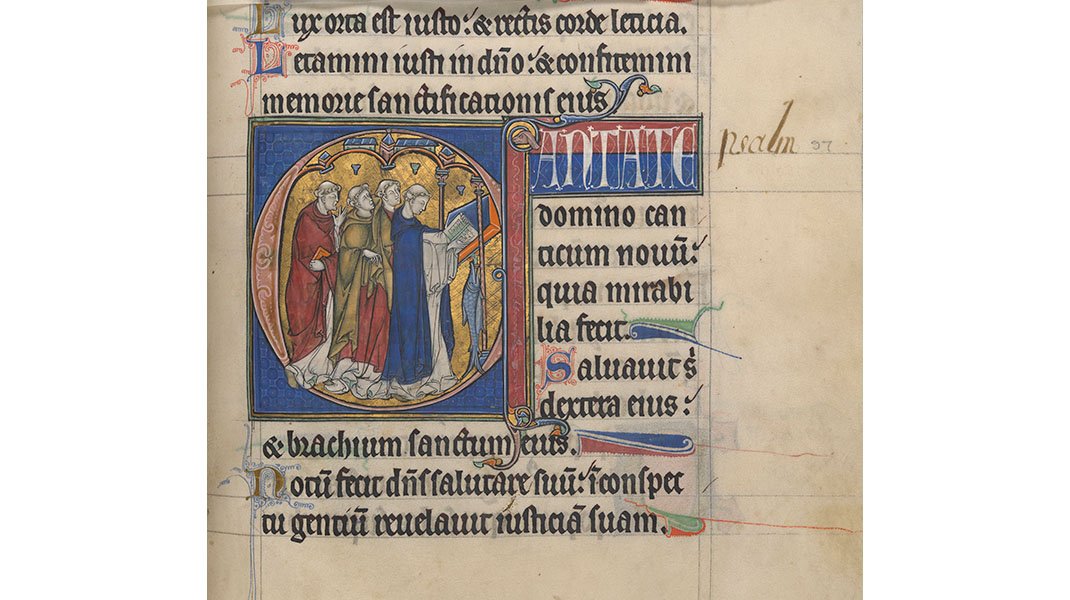 Lux orta est iusto: & rectis corde leticia.
Letamini iusti in dño: & confitemini
memorie sanctificationis eius
CANTATE
psalm 97
domino can
ticum nouũ:
quia mirabi
lia fecit.
Saluauit s̄
dextera eius:
& brachium sanctum eius.
Notũ fecit dñs salutare suũ: ĩ conspec
tu gentiũ reuelauit iusticiã suam.